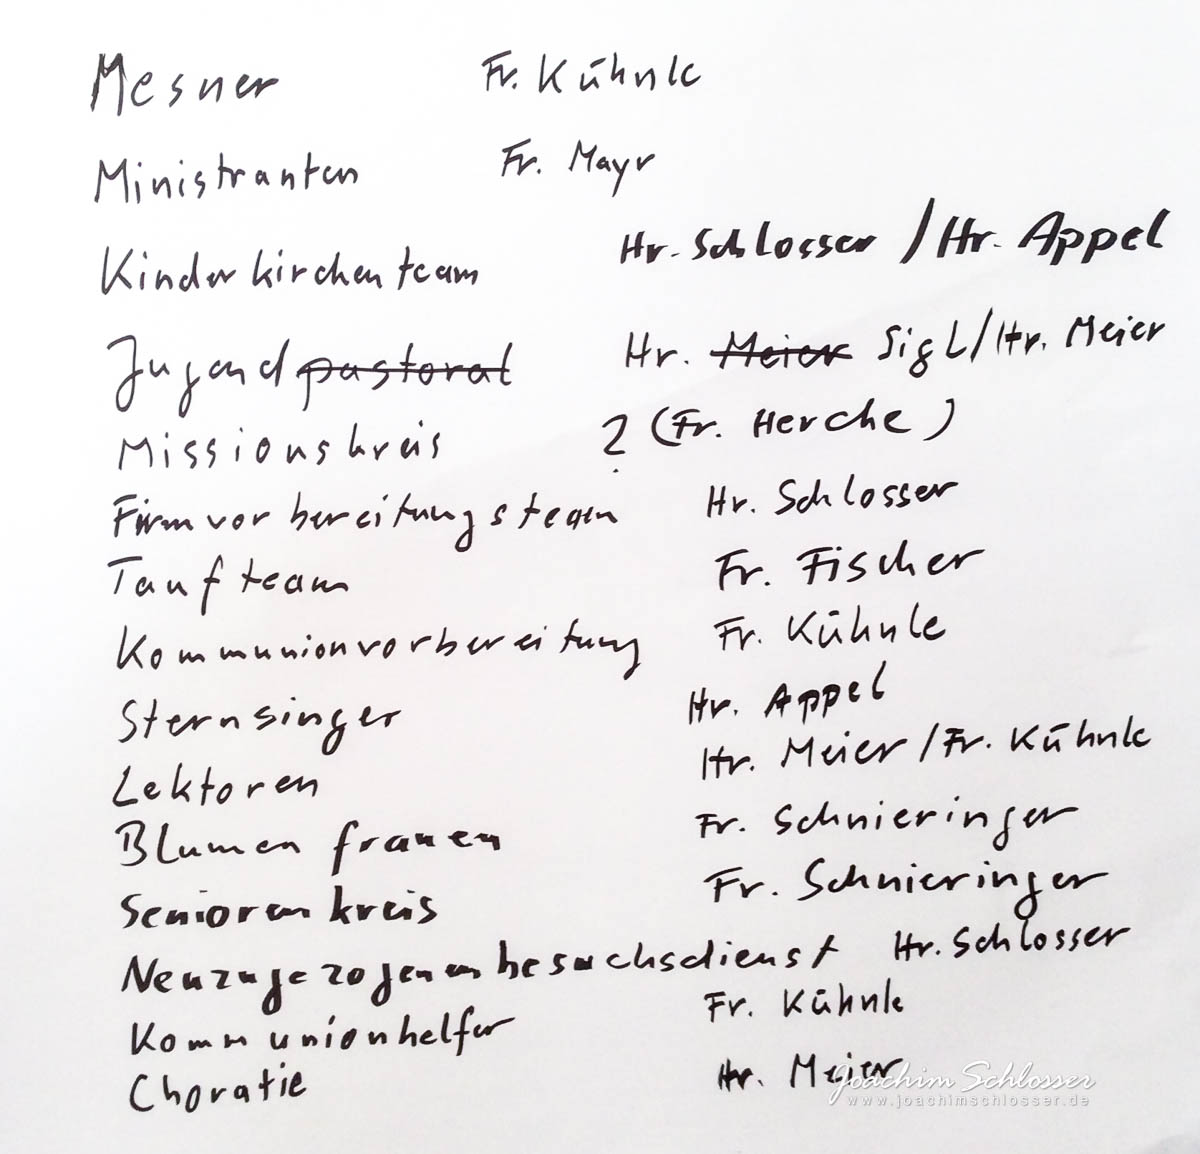 Mesner Fr. Kühnle
Ministranten Fr. Mayr
Kinderkirchenteam Hr. Schlosser / Hr. Appel
Jugendpastoral Hr. Meier Sigl / Hr. Meier
Missionskreis ? (Fr. Herche)
Firmvorbereitungsteam Hr. Schlosser
Taufteam Fr. Fischer
Kommunionvorbereitung Fr. Kühnle
Sternsinger Hr. Appel
Lektoren Hr. Meier / Fr. Kühnle
Blumenfrauen Fr. Schnieringer
Seniorenkreis Fr. Schnieringer
Neuzugezogenenbesuchsdienst Hr. Schlosser
Kommunionhelfer Fr. Kühnle
Choratie Hr. Meier
Joachim Schlosser
www.joachimschlosser.de